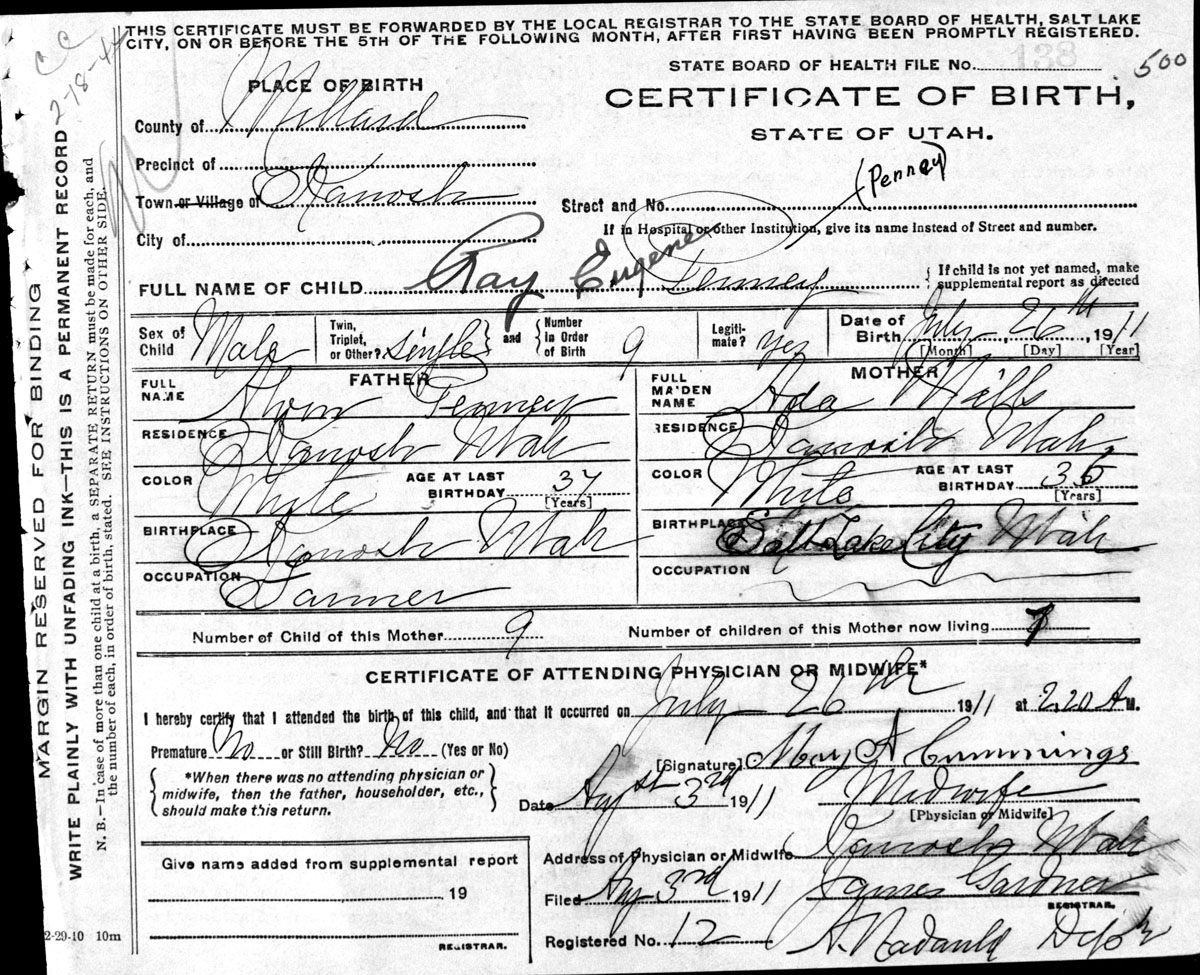 THIS CERTIFICATE MUST BE FORWARDED BY THE LOCAL REGISTRAR TO THE STATE BOARD OF HEALTH, SALT LAKE
CITY, ON OR BEFORE THE 5TH OF THE FOLLOWING MONTH, AFTER FIRST HAVING BEEN PROMPTLY REGISTERED.
138
STATE BOARD OF HEALTH FILE No. 500
PLACE OF BIRTH
CERTIFICATE OF BIRTH,
STATE OF UTAH.
County of Millard
Precinct of
Town or Village of Kanosh
(Penney)
Street and No.
If in Hospital or other Institution, give its name instead of Street and number.
City of
FULL NAME OF CHILD Ray Eugene Penney
{ If child is not yet named, make
supplemental report as directed
Sex of Child Male
Twin, Triplet, or Other? Single } and { Number in Order of Birth 9
Legiti- mate? Yes
Date of Birth July 26th, 1911
[Month] [Day] [Year]
FATHER
FULL NAME Penney
RESIDENCE Kanosh Utah
COLOR White AGE AT LAST BIRTHDAY 37 [Years]
BIRTHPLACE Kanosh Utah
OCCUPATION Farmer
MOTHER
FULL MAIDEN NAME Ada Mills
RESIDENCE Kanosh Utah
COLOR White AGE AT LAST BIRTHDAY 36 [Years]
BIRTHPLACE Salt Lake City Utah
OCCUPATION
Number of Child of this Mother 9 Number of children of this Mother now living 7
CERTIFICATE OF ATTENDING PHYSICIAN OR MIDWIFE*
I hereby certify that I attended the birth of this child, and that it occurred on July 26th 1911 at 2.20 A M.
Premature No or Still Birth? No (Yes or No)
{ *When there was no attending physician or
midwife, then the father, householder, etc.,
should make this return. }
[Signature] May A Cummings
Date Augst 3rd 1911 Midwife
[Physician or Midwife]
Address of Physician or Midwife Kanosh Utah
Filed Aug 3rd 1911 James Gardner
REGISTRAR.
Registered No. 12 A. Nadauld Dept
Give name added from supplemental report
19
REGISTRAR.
2-29-10 10m
MARGIN RESERVED FOR BINDING
WRITE PLAINLY WITH UNFADING INK—THIS IS A PERMANENT RECORD
N. B.—In case of more than one child at a birth, a SEPARATE RETURN must be made for each, and
the number of each, in order of birth, stated. SEE INSTRUCTIONS ON OTHER SIDE.
CC
2-18-44